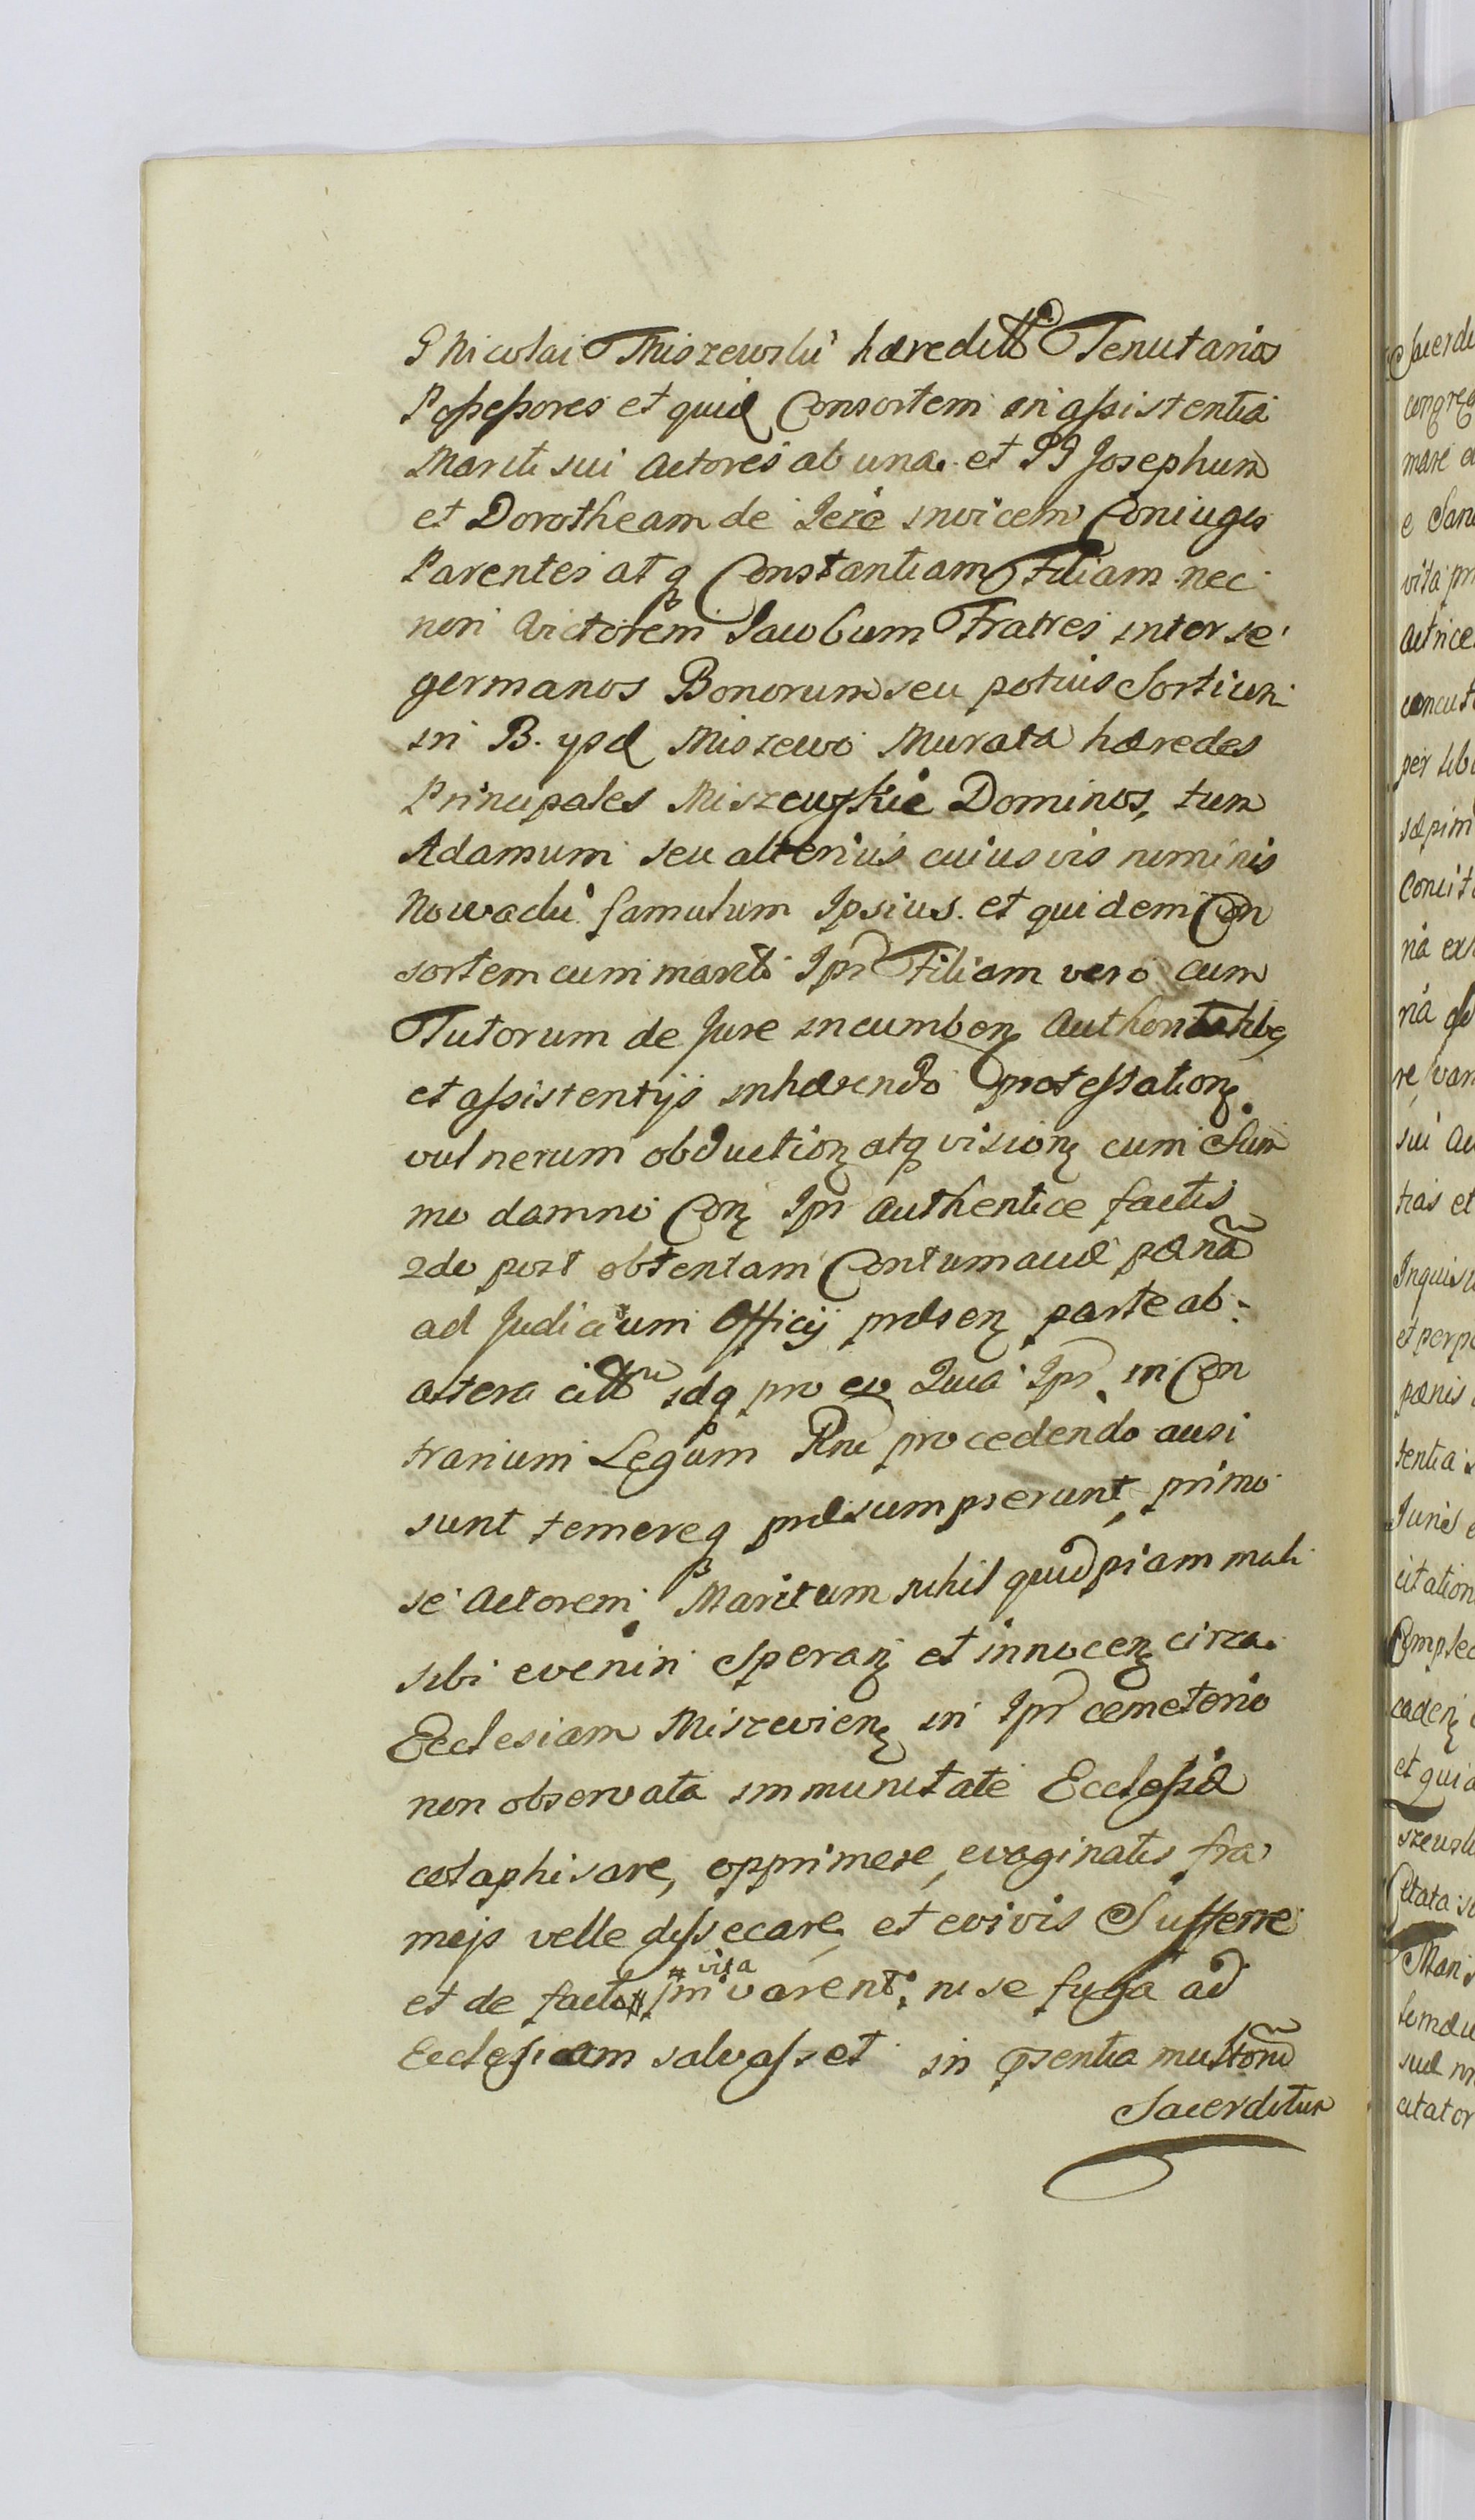 G Nicolai Miszewski hæredit Tenutarios
Possessores et quid Consortem in assistentia
Mariti sui Actores ab una et GG Josephum
et Dorotheam de Jeże invicem Coniuges
Parentes atq Constantiam Filiam nec
non Victorem Jacobum Fratres inter se
germanos Bonorum seu potius Sortium
in B. ypd Miszewo Murata hæredes
Principales Miszewskie Dominos, tum
Adamum seu alterius cuiusvis nominis
Nowacki famulum Ipsius et quidem Con
sortem cum mariti Ipr Filiam vero cum
Tutorum de Jure incumben Authoritatibq
et assistentijs inhærendo protestation
vulnerum obduction atq vision cum Sum
mo damno Con Ipr Authentice factis
2do post obtentam Contumaciæ pænã
ad Judicium Officij præsen parte ab
altera citt idq pro eo Quia Ipr in Con
trarium Legum Rni procedendo ausi
sunt temereq præsumpserunt, primo
se Actorem Maritum nihil quidpiam mali
sibi eveniri Speran et innocen circa
Ecclesiam Miszevien in Ipr cemeterio
non observata immunitate Ecclesiæ
colaphisare, opprimere, evaginatis fra
mejs velle dissecare, et e vivis Sufferre
et de facto # vita privarent, ni se fuga ad
Ecclesiam salvasset in psentia multorũ
Sacerdotum

Sacerdo
congreg
mare e
e San
vita pri
Actrice
concut
per sibi
sæpim
Concit
ria ex
re, van
sui Ac
tras et
Inquisi
et perp
pænis
tentia
Juris e
citation
Complec
caden
et quia
szewski
Citata
Mari
citator